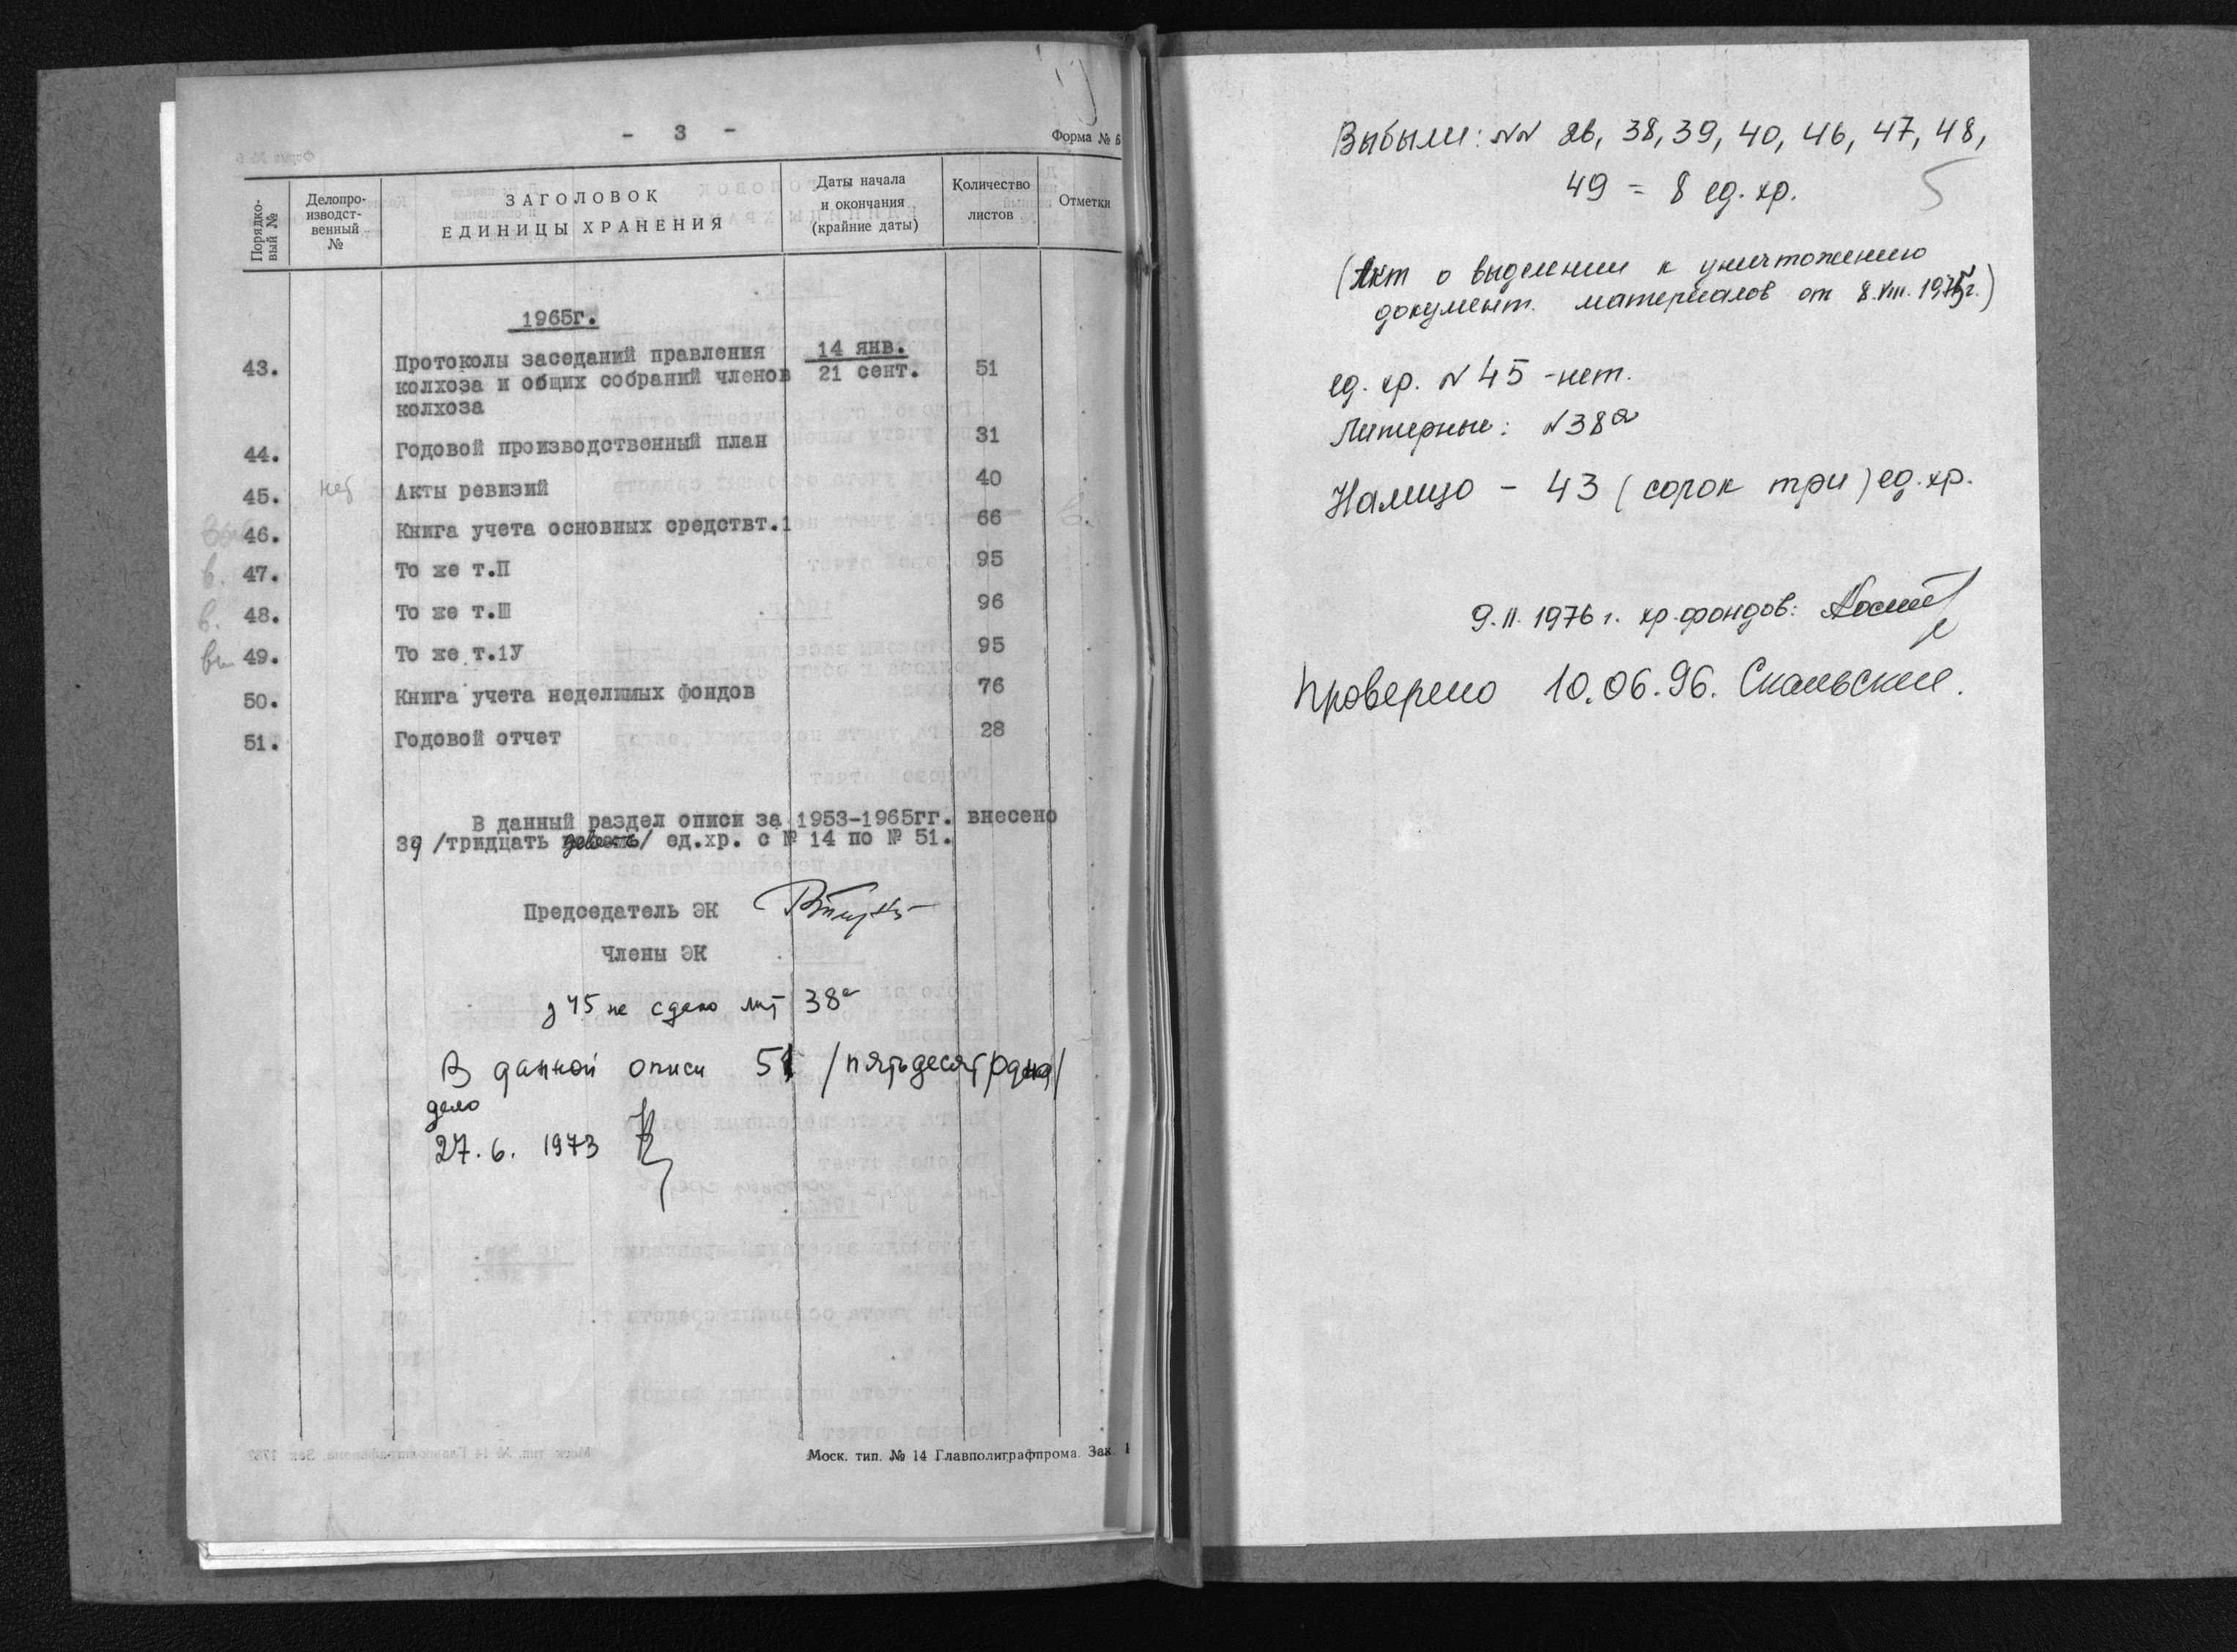 - 3 -
Форма № 6
Порядко-
вый №
Делопро-
изводст-
венный
№
ЗАГОЛОВОК
ЕДИНИЦЫ ХРАНЕНИЯ
Даты начала
и окончания
(крайние даты)
Количество
листов
Отметки
1965г.
43. Протоколы заседаний правления 14 янв. 51
колхоза и общих собраний членов 21 сент.
колхоза
44. Годовой производственный план 31
45. нет Акты ревизий 40
46. Книга учета основных средствт.1 66 в.
в. 47. То же т.П 95
в. 48. То же т.Ш 96
вы 49. То же т.1У 95
50. Книга учета неделимых фондов 76
51. Годовой отчет 28
В данный раздел описи за 1953-1965гг. внесено
39 /тридцать девять/ ед.хр. с № 14 по № 51.
Председатель ЭК
Члены ЭК
45 не сдано лит 38а
В данной описи 51 /пятьдесят одно/
дело
27.6. 1973
Моск. тип. № 14 Главполиграфпрома. Зак. 1
Выбыли: NN 26, 38, 39, 40, 46, 47, 48,
49 = 8 ед. хр.
5
(Акт о выделении к уничтожению
документ. материалов от 8.VIII. 1975г.)
ед. хр. N 45 - нет.
Литерные: N 38а
Налицо - 43 (сорок три) ед. хр.
9.II. 1976 г. хр. фондов:
Проверено 10.06.96.